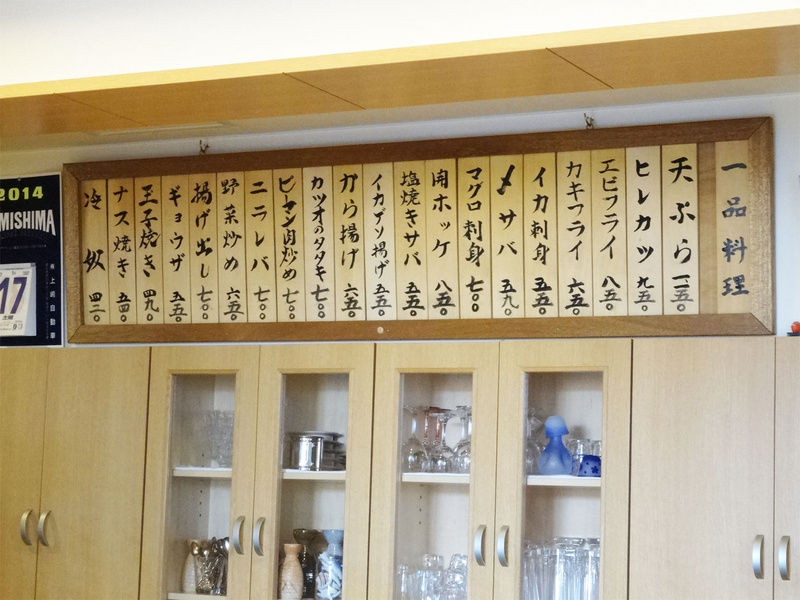 一品料理
天ぷら 一一五〇
ヒレカツ 九五〇
エビフライ 八五〇
カキフライ 六五〇
イカ刺身 五五〇
〆サバ 五九〇
マグロ刺身 七〇〇
開ホッケ 八五〇
塩焼きサバ 五五〇
イカゲソ揚げ 五五〇
から揚げ 六五〇
カツオのタタキ 七〇〇
ピーマン肉炒め 七〇〇
ニラレバ 七〇〇
野菜炒め 六五〇
揚げ出し 七〇〇
ギョウザ 五五〇
玉子焼き 四九〇
ナス焼き 五四〇
冷奴 四三〇
2014
MISHIMA
17